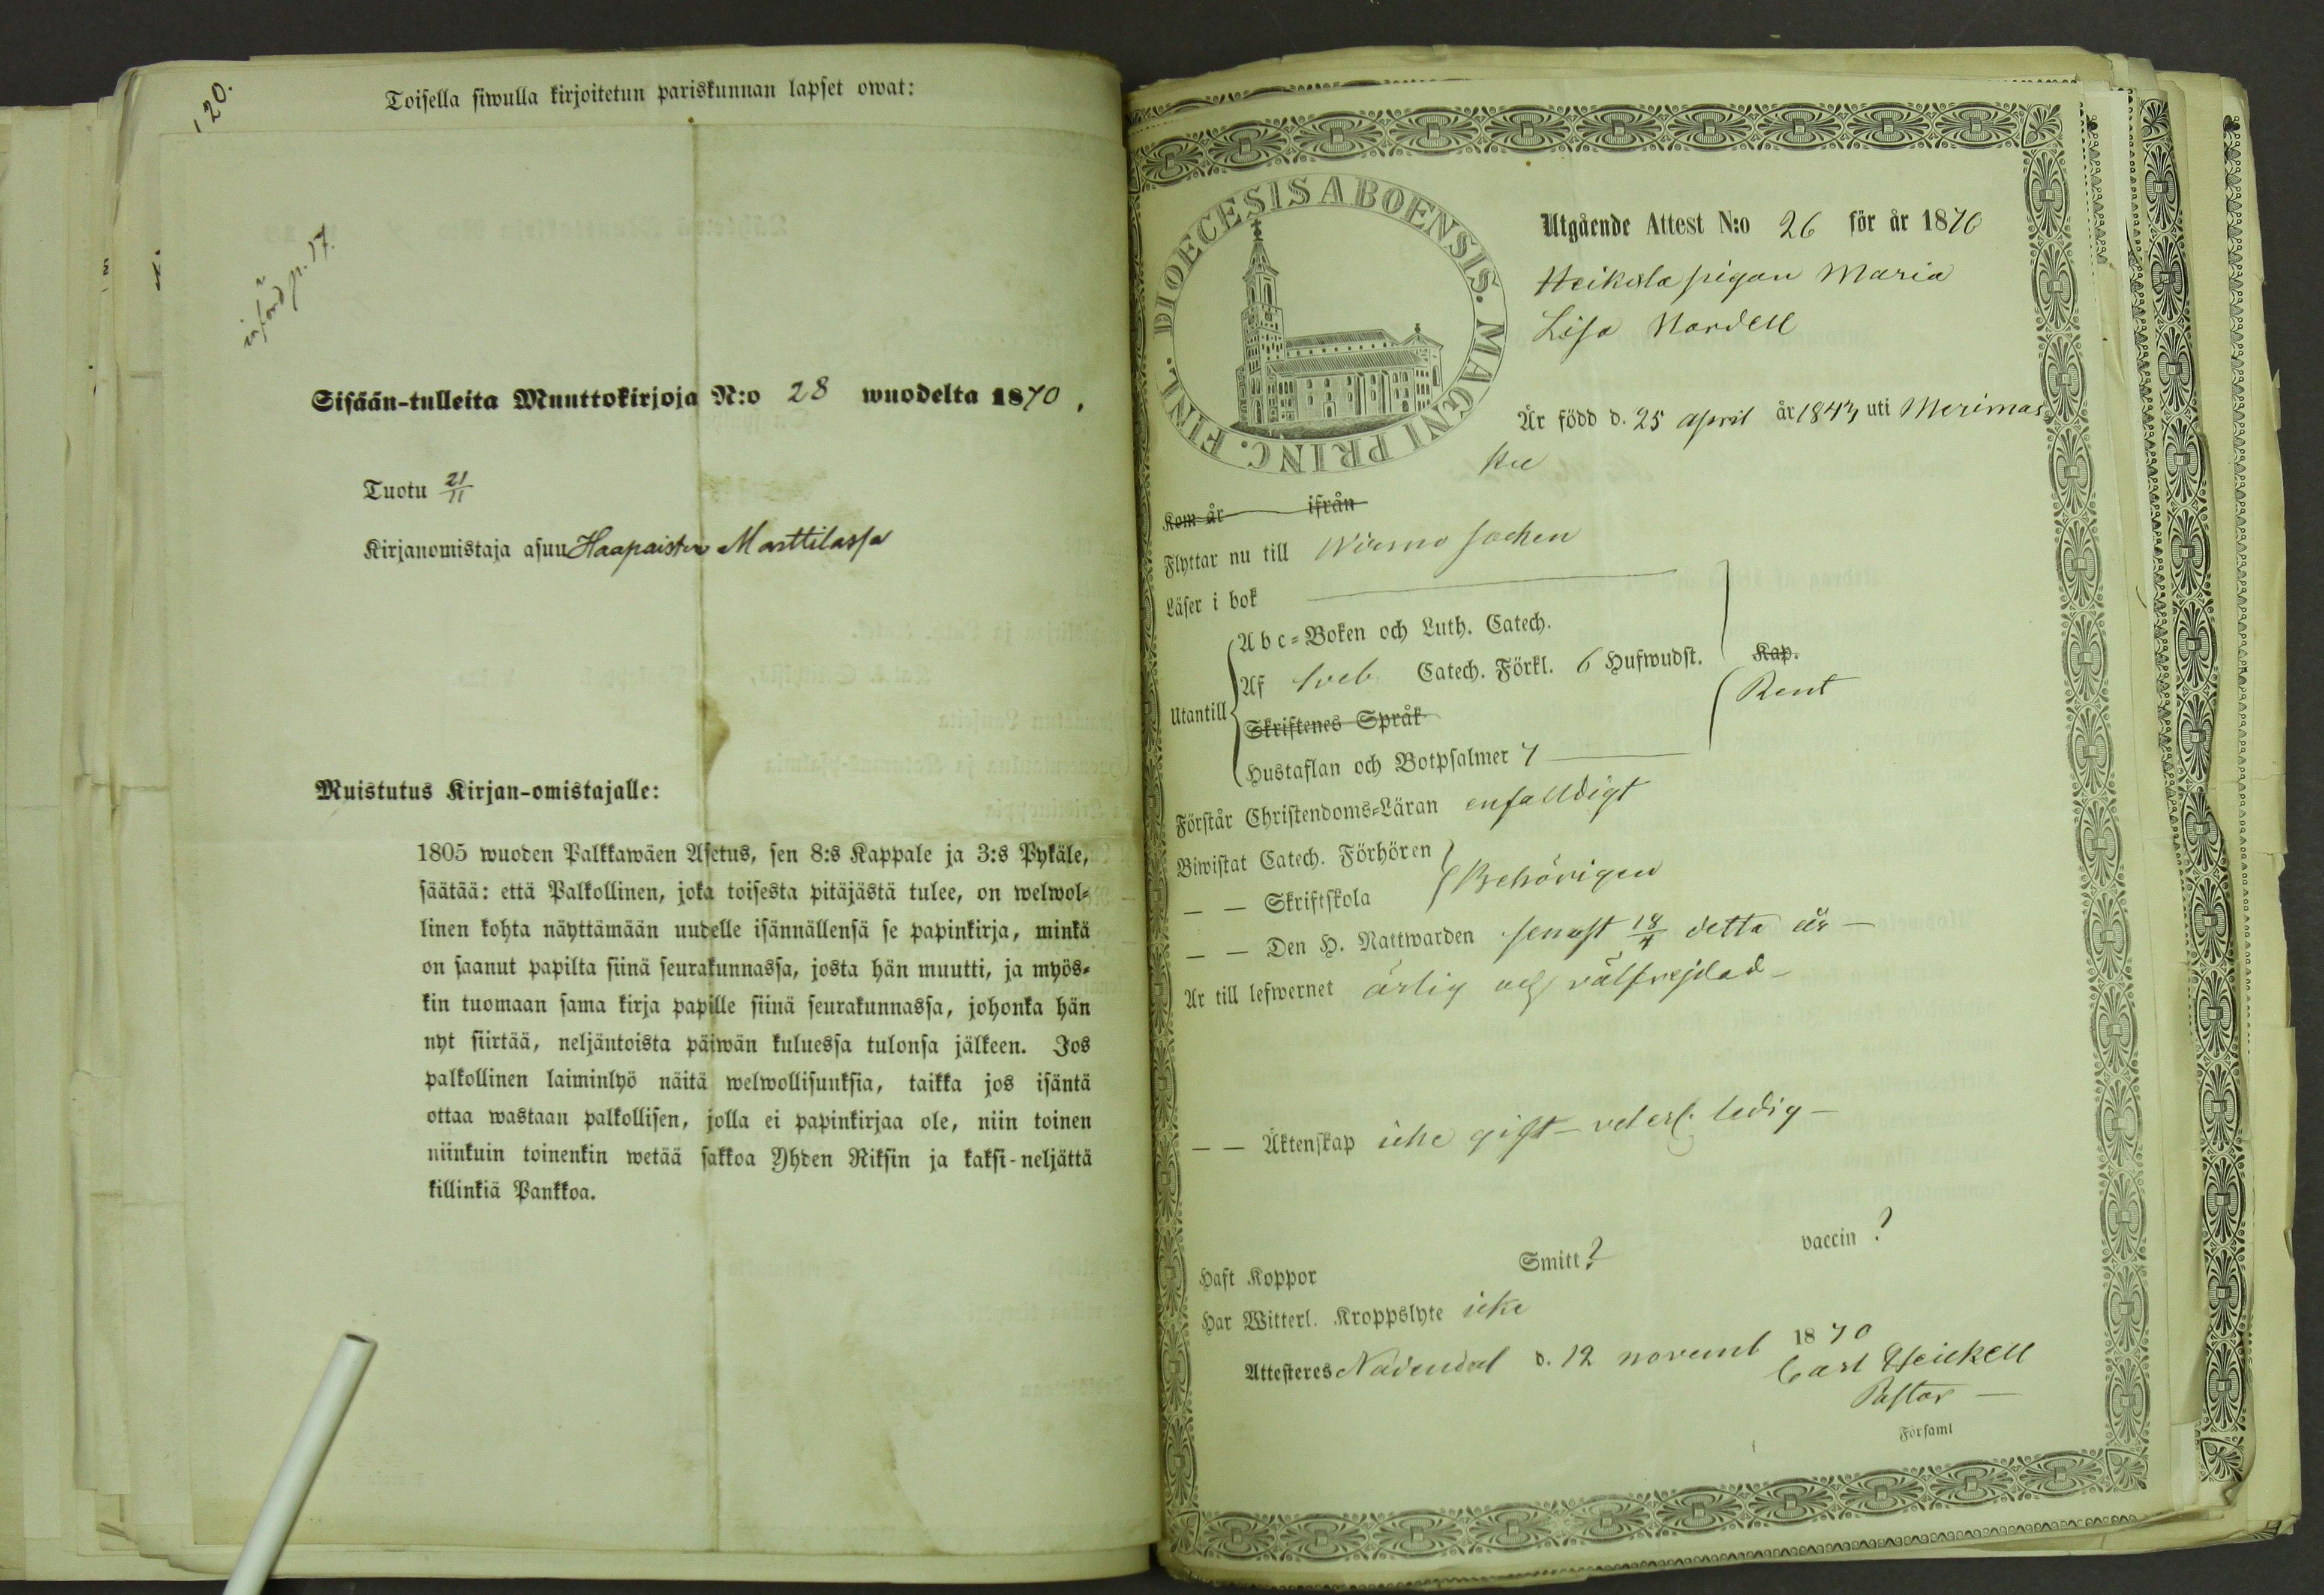 120.
Toisella siwulla kirjoitetun pariskunnan lapset owat:
införd p. 17.
Sisään-tulleita Muuttokirjoja N:o 28 wuodelta 1870.
Tuotu 21/11
Kirjanomistaja asuu Haapaisten Marttilassa
Muistutus Kirjan-omistajalle:
1805 wuoden Palkkawäen Asetus, sen 8:s Kappale ja 3:s Pykäle,
säätää: että Palkollinen, joka toisesta pitäjästä tulee, on welwol-
linen kohta näyttämään uudelle isännällensä se papinkirja, minkä
on saanut papilta siinä seurakunnassa, josta hän muutti, ja myös-
kin tuomaan sama kirja papille siinä seurakunnassa, johonka hän
nyt siirtää, neljäntoista päiwän kuluessa tulonsa jälkeen. Jos
palkollinen laiminlyö näitä welwollisuuksia, taikka jos isäntä
ottaa wastaan palkollisen, jolla ei papinkirjaa ole, niin toinen
niinkuin toinenkin wetää sakkoa Yhden Riksin ja kaksi-neljättä
killinkiä Pankkoa.
DIOECESIS ABOENSIS. MAGNI PRINC. FINL.
Utgående Attest N:o 26 för år 1870
Heikola pigan Maria
Lisa Nordell
Är född d. 25 april år 1843 uti Merimas
ku
Kom år ifrån
Flyttar nu till Wirmo socken
Läser i bok
Abc-Boken och Luth. Catech.
Utantill Af Sveb. Catech. Förkl. 6 Hufwudst. Kap.
Rent
Skriftenes Språk
Hustaflan och Botpsalmer 7
Förstår Christendoms-Läran enfalldigt
Biwistat Catech. Förhören
Behörigen
— — Skriftskola
— — Den H. Nattwarden senast 18/4 detta år —
Är till lefwernet ärlig och välfrejdad —
— — Äktenskap icke gift — ledig —
Haft Koppor Smitt? vaccin?
Har Witterl. Kroppslyte icke
Attesteres Nådendal d. 12 novemb 1870
Carl Heickell
Pastor —
Församl